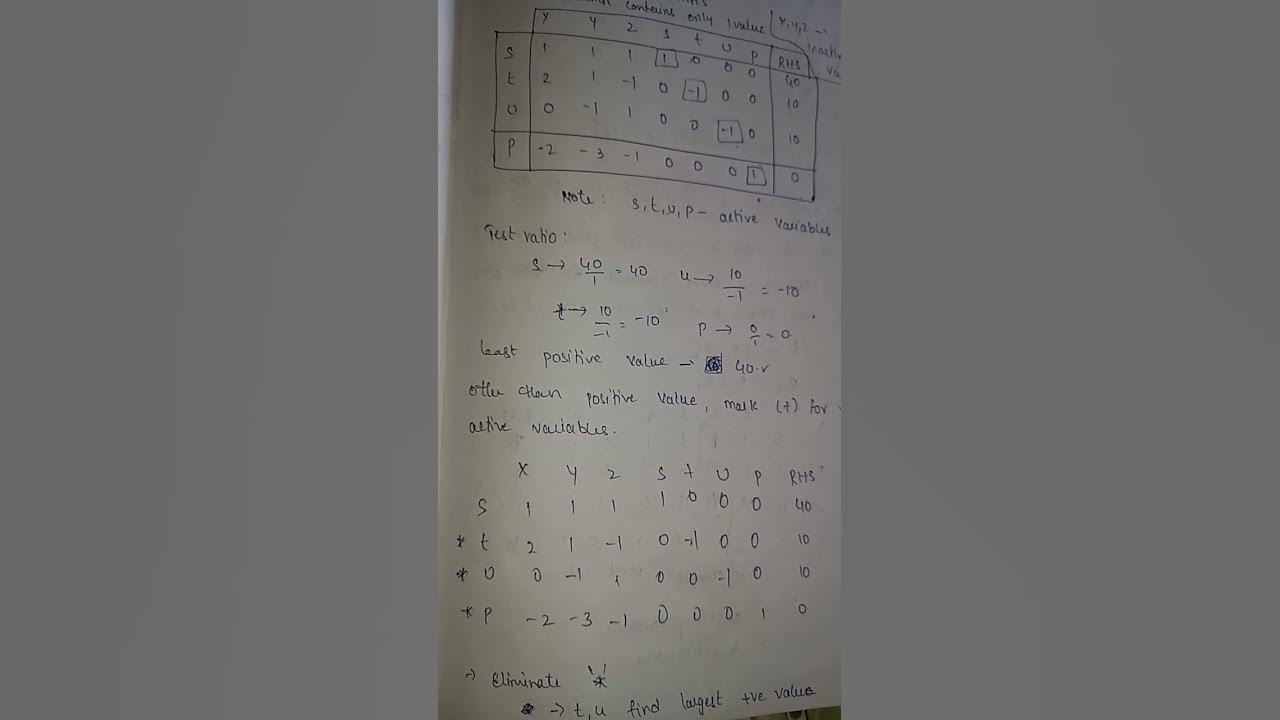 contains only 1 value
x, y, z →
inactive
x y z s t u p RHS
s 1 1 1 1 0 0 0 40
t 2 1 -1 0 -1 0 0 10
u 0 -1 1 0 0 -1 0 10
p -2 -3 -1 0 0 0 1 0
Note : s, t, u, p - active variables
Test ratio :
s → 40/1 = 40 u → 10/-1 = -10
t → 10/-1 = -10 p → 0/1 = 0
least positive value - 40.
other than positive value, mark (*) for
active variables.
x y z s t u p RHS
s 1 1 1 1 0 0 0 40
* t 2 1 -1 0 -1 0 0 10
* u 0 -1 1 0 0 -1 0 10
* p -2 -3 -1 0 0 0 1 0
→ Eliminate '*'
→ t, u find largest +ve value